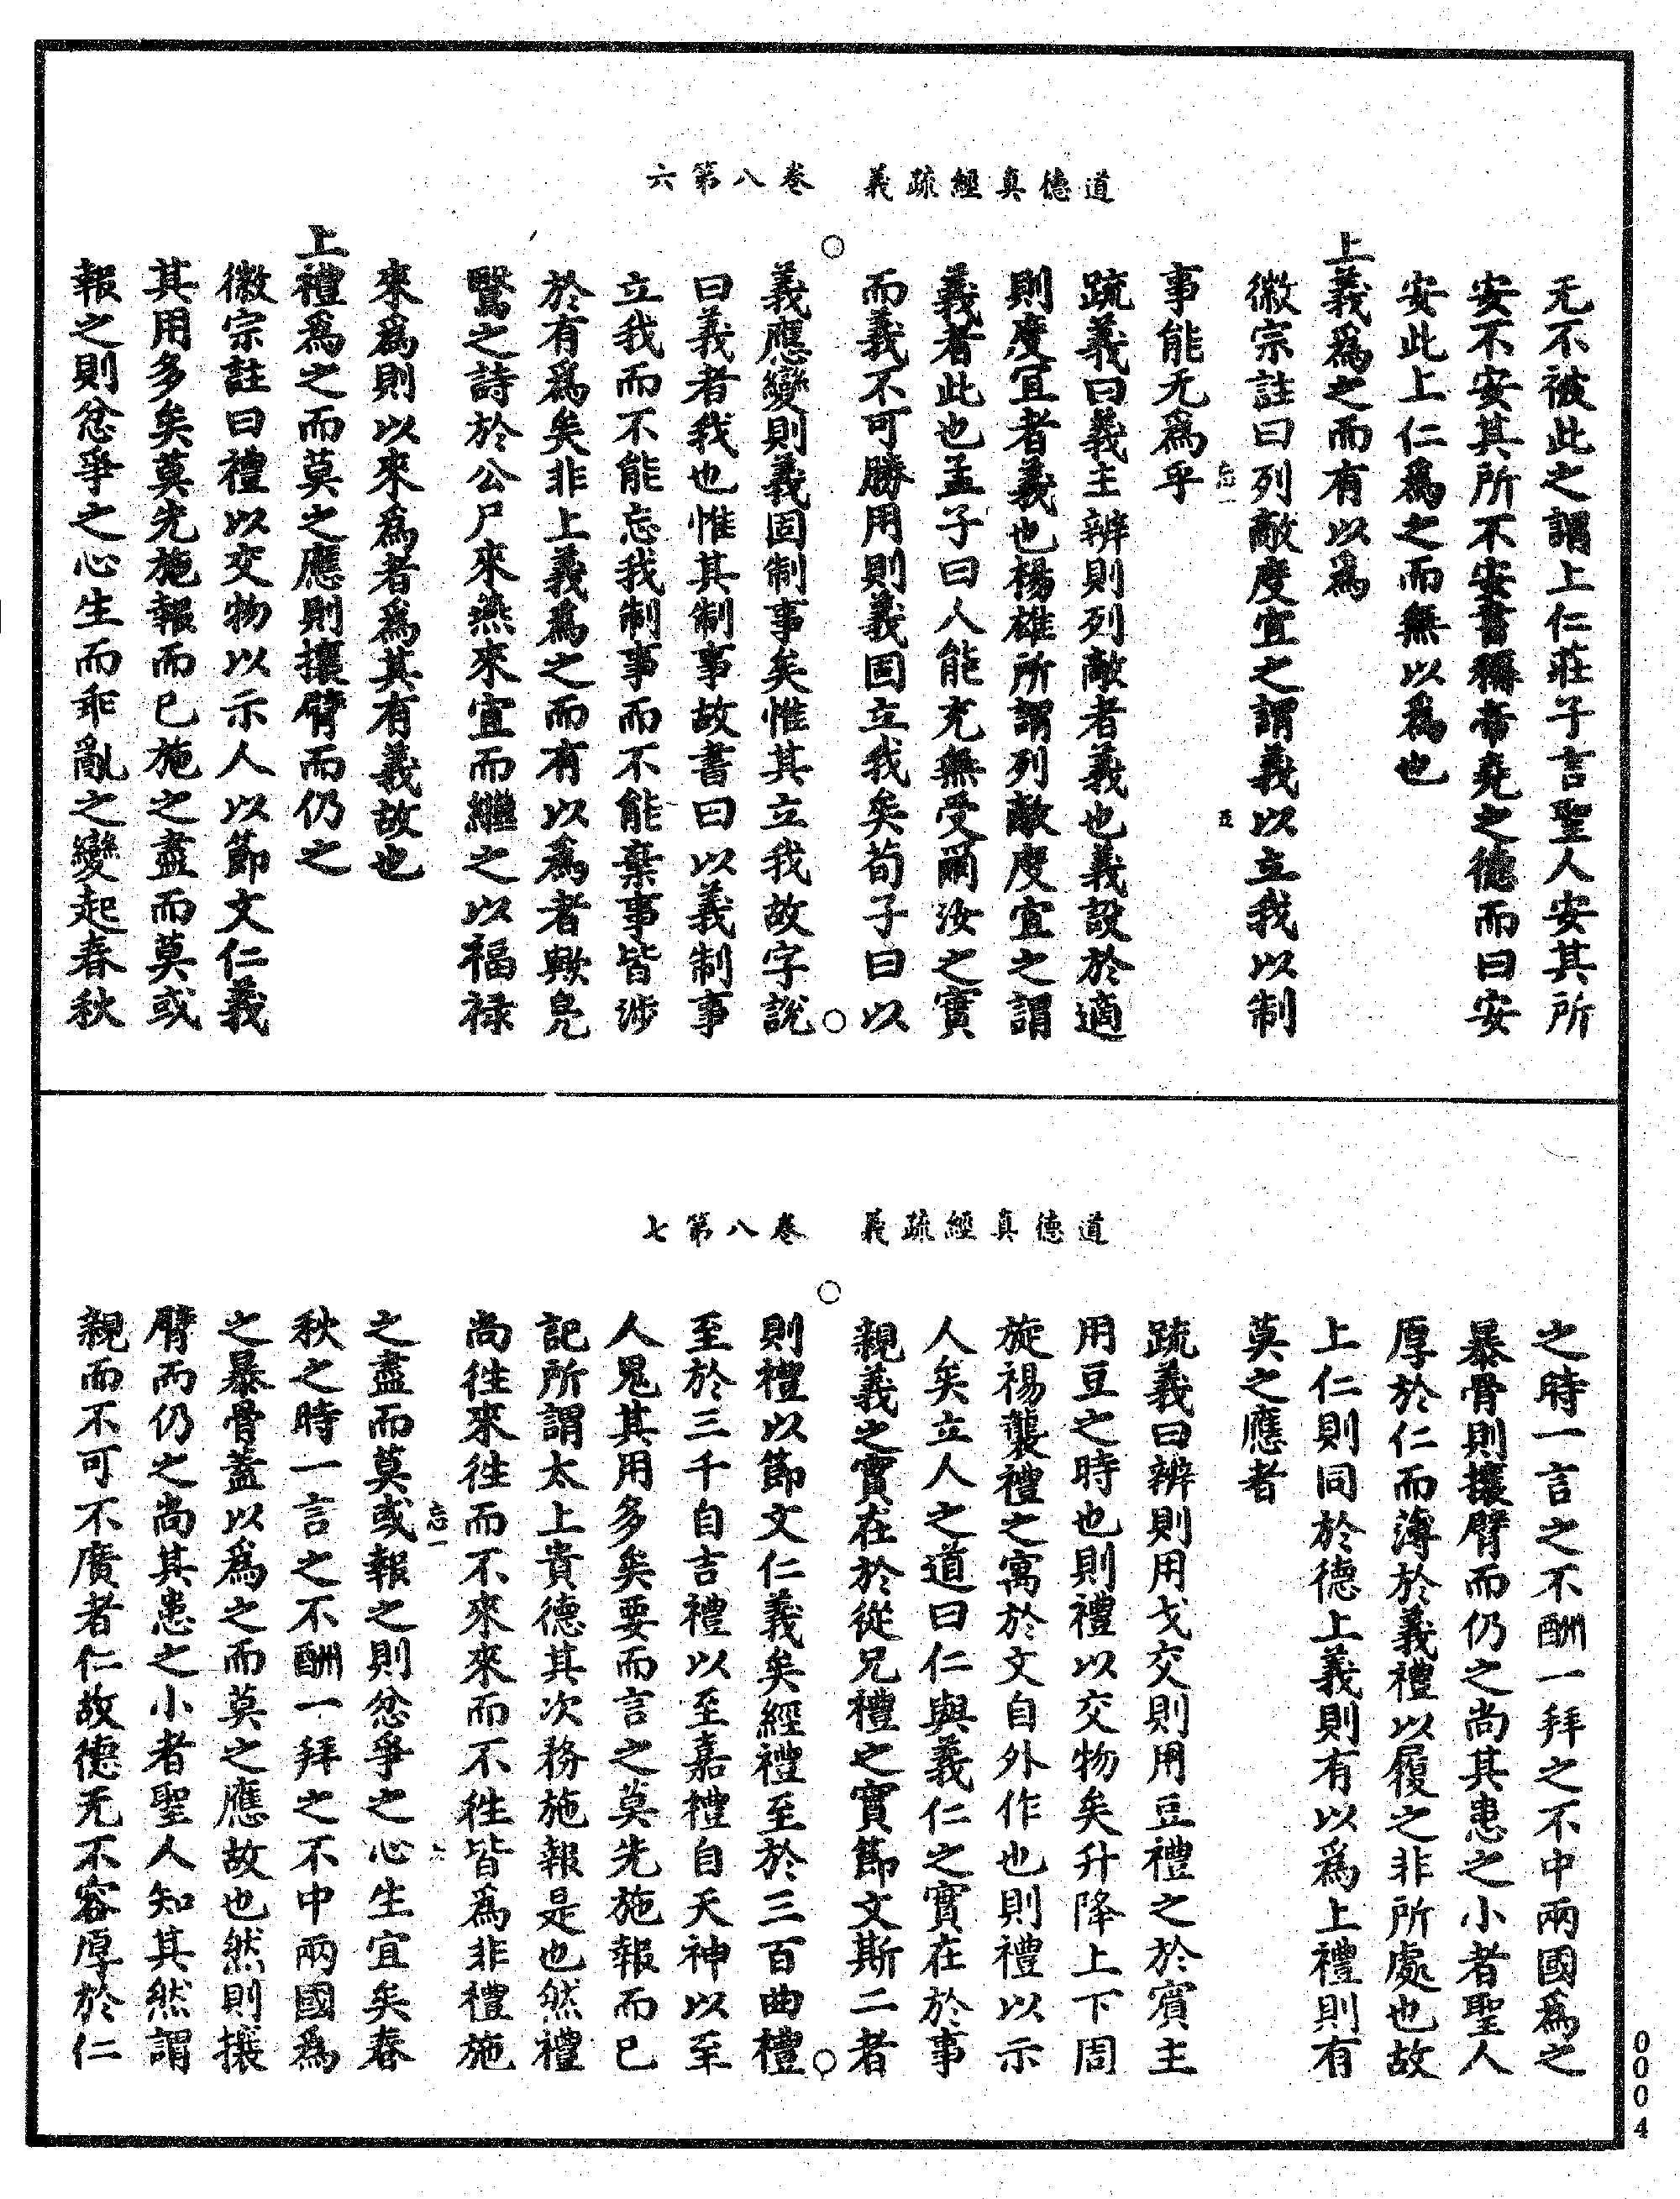 道德真經疏義　卷八第六
无不被此之謂上仁莊子言聖人安其所
安不安其所不安書稱帝堯之德而曰安
安此上仁爲之而無以爲也
上義爲之而有以爲
徽宗註曰列敵度宜之謂義以立我以制
忘一
五
事能无爲乎
疏義曰義主辨則列敵者義也義設於適
則度宜者義也楊雄所謂列敵度宜之謂
義者此也孟子曰人能充無受爾汝之實
而義不可勝用則義固立我矣荀子曰以
義應變則義固制事矣惟其立我故字說
曰義者我也惟其制事故書曰以義制事
立我而不能忘我制事而不能棄事皆涉
於有爲矣非上義爲之而有以爲者歟鳧
鷖之詩於公尸來燕來宜而繼之以福祿
來爲則以來爲者爲其有義故也
上禮爲之而莫之應則攘臂而仍之
徽宗註曰禮以交物以示人以節文仁義
其用多矣莫先施報而已施之盡而莫或
報之則忿爭之心生而乖亂之變起春秋
道德真經疏義　卷八第七
之時一言之不酬一拜之不中兩國爲之
暴骨則攘臂而仍之尚其患之小者聖人
厚於仁而薄於義禮以履之非所處也故
上仁則同於德上義則有以爲上禮則有
莫之應者
疏義曰辨則用戈交則用豆禮之於賓主
用豆之時也則禮以交物矣升降上下周
旋裼襲禮之寓於文自外作也則禮以示
人矣立人之道曰仁與義仁之實在於事
親義之實在於從兄禮之實節文斯二者
則禮以節文仁義矣經禮至於三百曲禮
至於三千自吉禮以至嘉禮自天神以至
人鬼其用多矣要而言之莫先施報而已
記所謂太上貴德其次務施報是也然禮
尚往來往而不來來而不往皆爲非禮施
忘一
六
之盡而莫或報之則忿爭之心生宜矣春
秋之時一言之不酬一拜之不中兩國爲
之暴骨蓋以爲之而莫之應故也然則攘
臂而仍之尚其患之小者聖人知其然謂
親而不可不廣者仁故德无不容厚於仁
0004